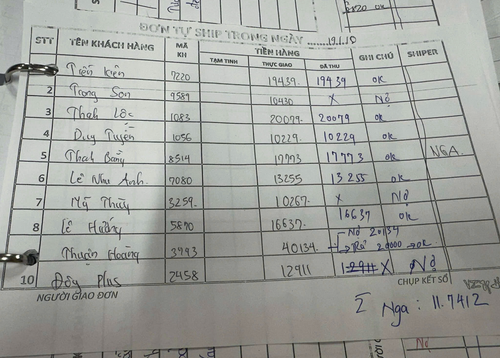 ĐƠN TỰ SHIP TRONG NGÀY ......19.1.18
STT TÊN KHÁCH HÀNG MÃ KH TIỀN HÀNG GHI CHÚ SHIPER
TẠM TÍNH THỰC GIAO ĐÃ THU
Tiến Kiên 7220 19439 19439 ok
2 Trọng Sơn 9589 10430 X Nợ
3 Thạh Lộc 1083 20079 20079 ok
4 Duy Tuyển 1056 10229 10229 ok
5 Thah Bằng 8514 17773 17773 ok NGA
6 Lê Như Anh 7080 13255 13255 ok
7 Mỹ Thùy 3259 10267 X Nợ
8 Lê Hướng 5870 16637 16637 ok
Thuận Hoàng 3993 40134 Nợ 20134
Trả 20000 → ok
10 Đông Plus 2458 12911 12911 X Nợ
NGƯỜI GIAO ĐƠN CHỤP KẾT SỐ
Σ Nga : 11.7412